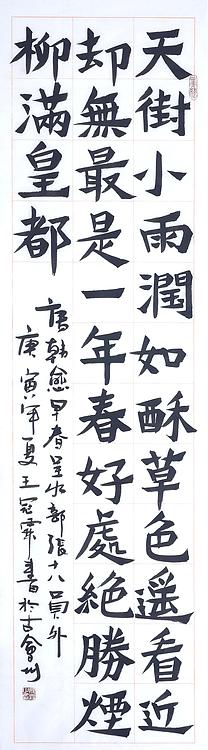 天街小雨潤如酥草色遥看近
却無最是一年春好處絶勝煙
柳滿皇都
唐韓愈早春呈水部張十八員外
庚寅年夏王冠書於古會州